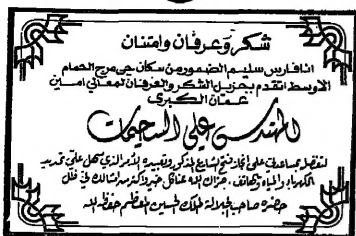 شكر وعرفان وامتنان
انا فارس سليم الضمور من سكان حي مرج الحمام
الاوسط اتقدم بجزيل الشكر والعرفان لمعالي امين
عمان الكبرى
المهندس علي السحيمات
لتفضله مساعدتي على فتح الشارع المذكور وتعبيده الأمر الذي سهل علي تمديد
الكهرباء والمياه والهاتف، جزاك الله عنا كل خير وأكثر من امثالك في ظل
حضرة صاحب الجلالة الملك الحسين المعظم حفظه الله